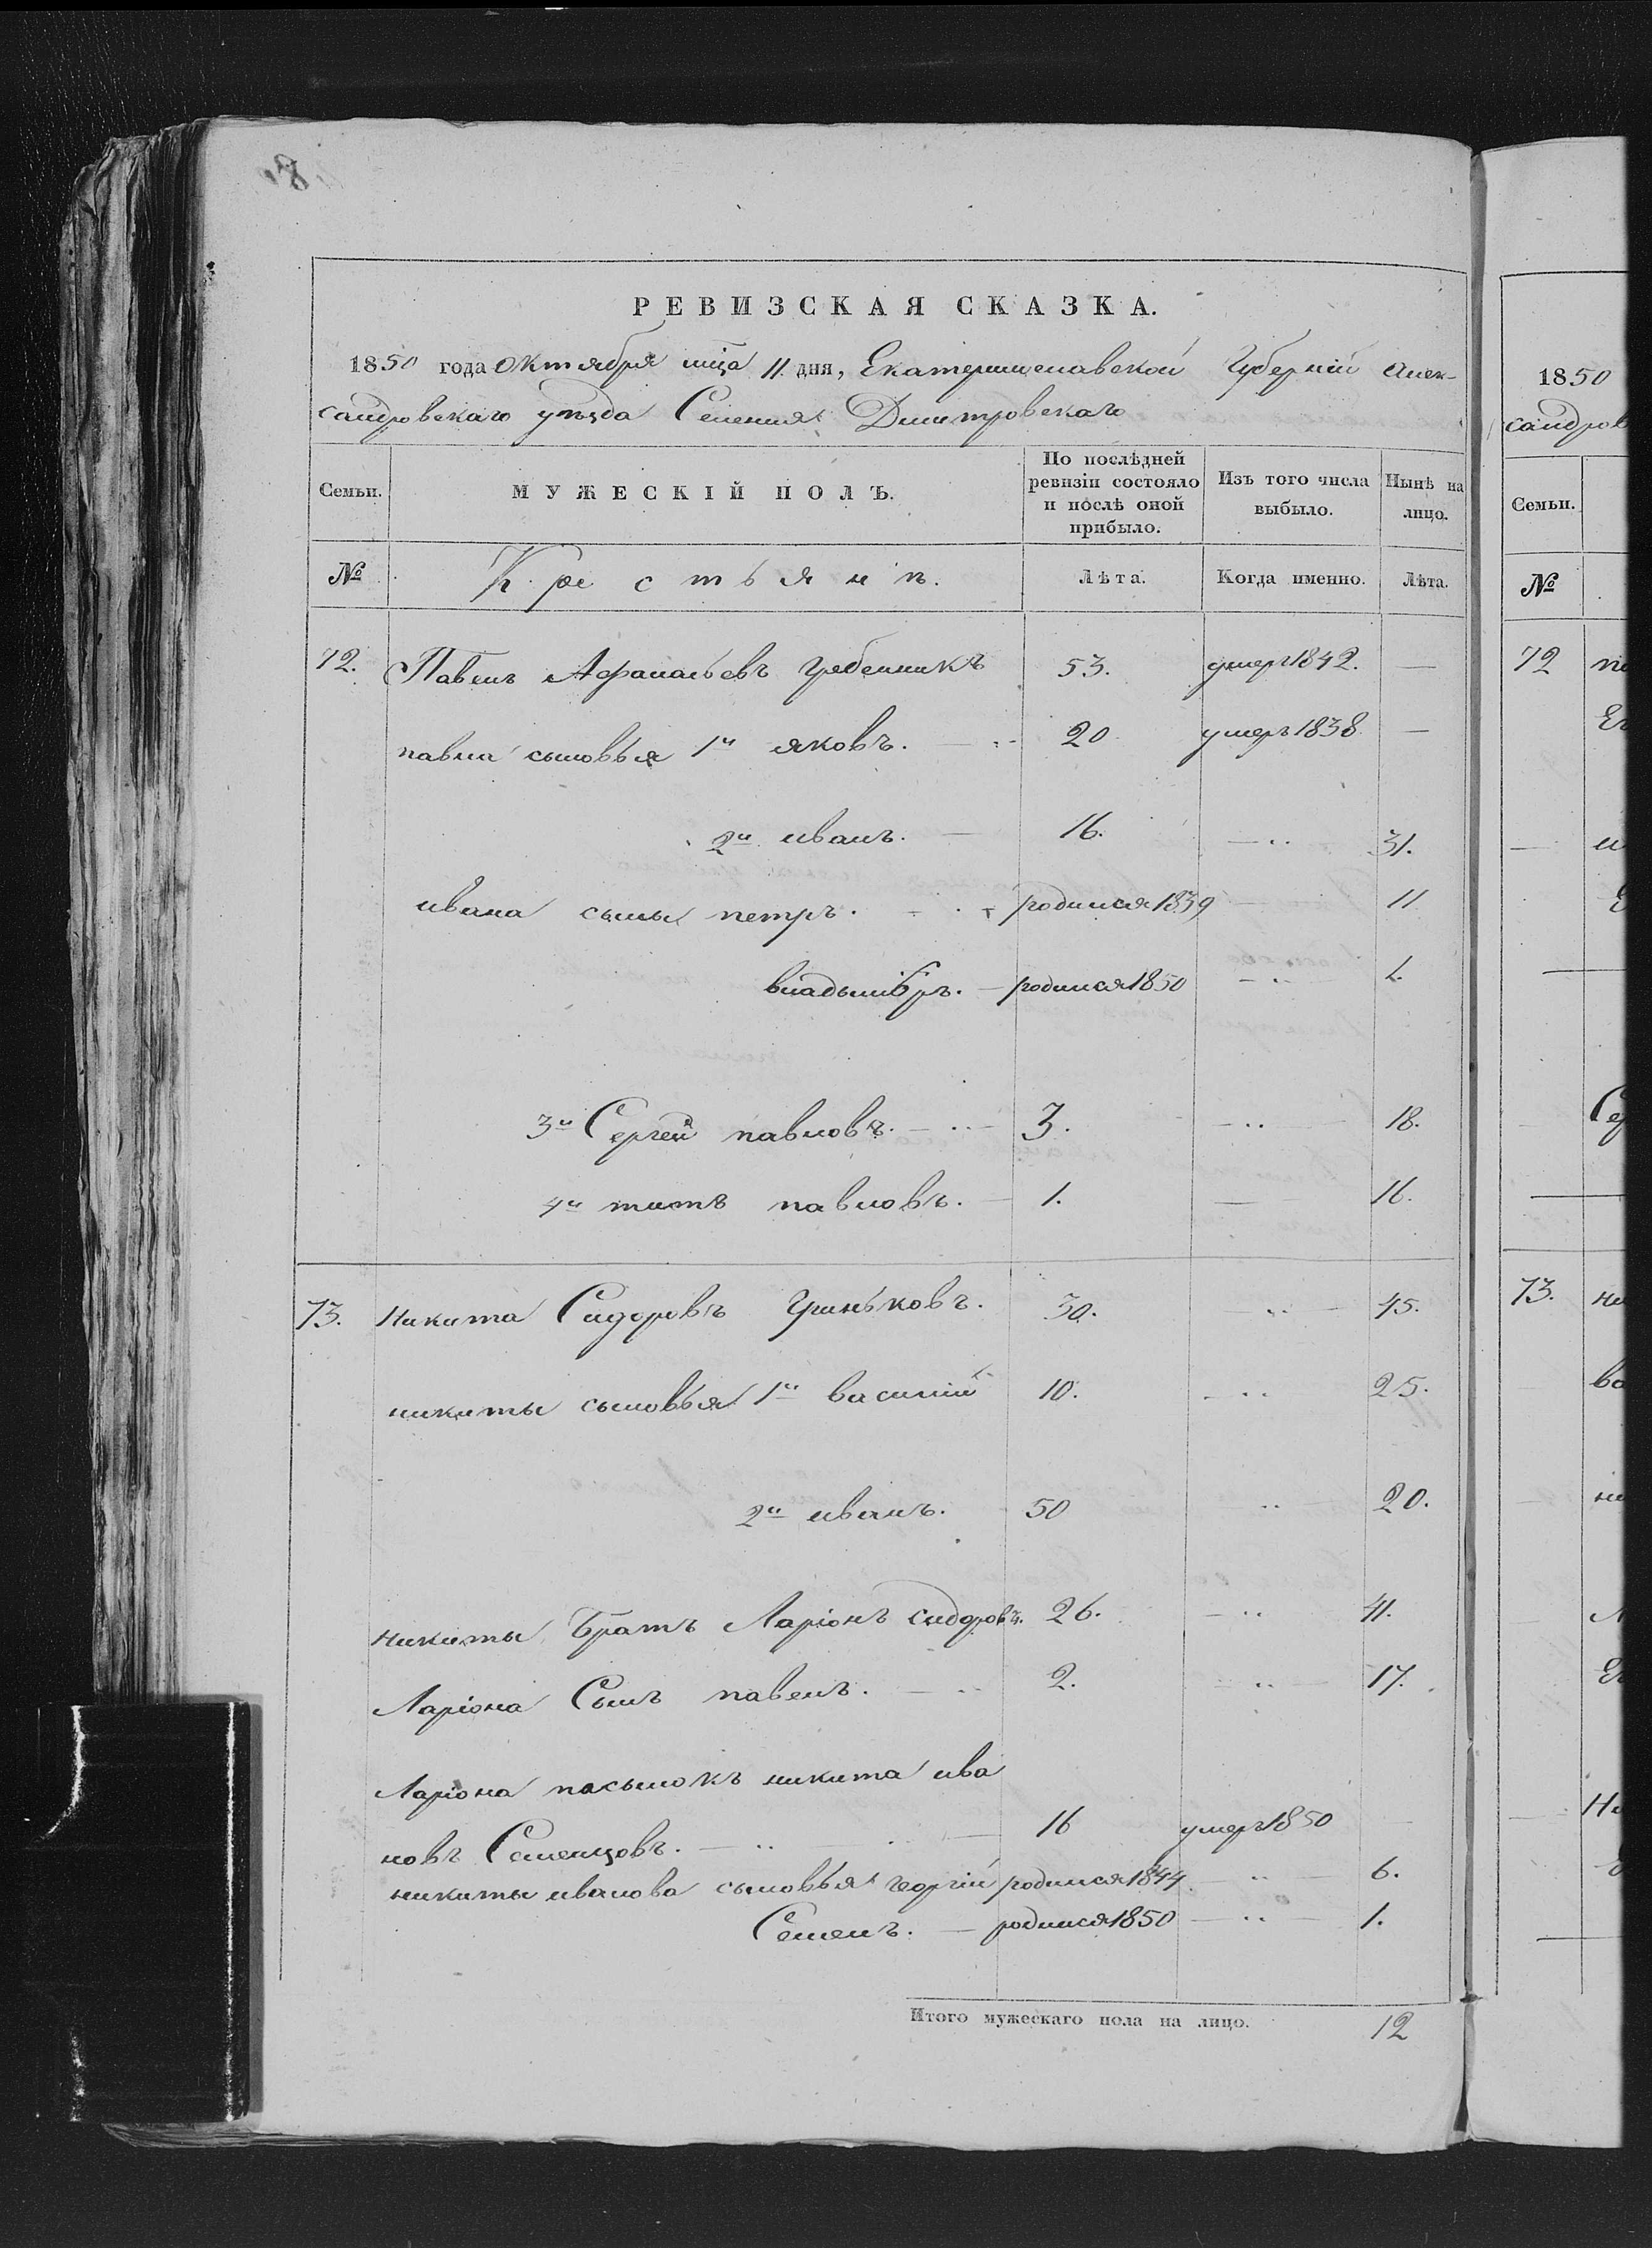 РЕВИЗСКАЯ СКАЗКА.
1850 года Октября мца 11 дня, Екатеринославской Губерніи Алек-
сандровскаго уѣзда Селенія Дмитровскаго
Семьи. МУЖЕСКІЙ ПОЛЪ. По послѣдней ревизіи состояло и послѣ оной прибыло. Изъ того числа выбыло. Нынѣ на лицо.
№ Крестьянъ. Лѣта. Когда именно. Лѣта.
72. Павелъ Афанасьевъ Гребенникъ 53. умеръ 1842. —
павла сыновья 1й яковъ. 20 умеръ 1838 —
2й иванъ. 16. 31.
ивана сыны петръ. родился 1839 11
владыміръ. родился 1850 1.
3й Сергей павловъ. 3. 18.
4й титъ павловъ. 1. 16.
73. Никита Сидоровъ Гриньковъ. 30. 45.
никиты сыновья 1й василій 10. 25.
2й иванъ. 50 20.
Никиты Братъ Ларіонъ сидоровъ. 26. 41.
Ларіона Сынъ павелъ. 2. 17.
Ларіона пасынокъ никита ива
новъ Семенцовъ. 16 умеръ 1850
никиты иванова сыновья георгій родился 1844 6.
Семенъ. родился 1850 1.
Итого мужескаго пола на лицо. 12
1850
сандров
Семьи.
№
72
Сер
73.